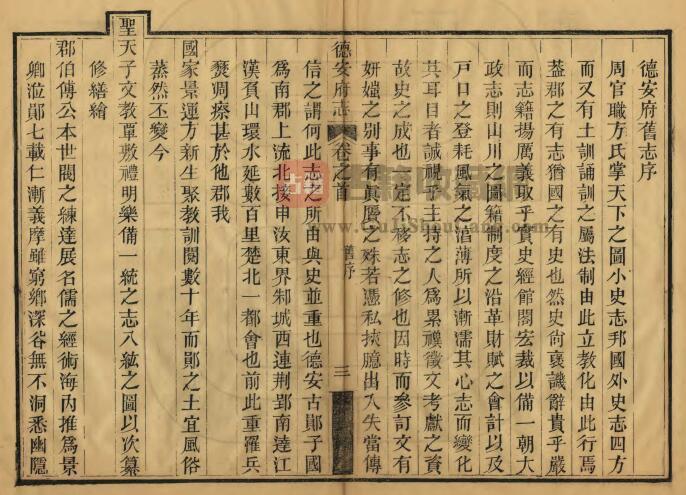 德安府舊志序
周官職方氏掌天下之圖小史志邦國外史志四方
而又有土訓誦訓之屬法制由此立教化由此行焉
蓋郡之有志猶國之有史也然史尚褒譏辭貴乎嚴
而志籍揚厲義取乎實史經館閣宏裁以備一朝大
政志則山川之圖籍制度之沿革財賦之會計以及
戶口之登耗風氣之淳薄所以漸濡其心志而變化
其耳目者誠視乎主持之人為累禩徵文考獻之資
故史之成也一定不移志之修也因時而參訂文有
妍媸之别事有眞贗之殊若憑私挾臆出入失當傳
德安府志
卷之首
舊序
三
信之謂何此志之所由與史並重也德安古鄖子國
為南郡上流北接申汝東界邾城西連荆郢南達江
漢負山環水延數百里楚北一都會也前此重罹兵
燹凋瘵甚於他郡我
國家景運方新生聚教訓閱數十年而鄖之土宜風俗
蒸然丕變今
聖天子文教覃敷禮明樂備一統之志八紘之圖以次纂
修繕繪
郡伯傅公本世閥之練達展名儒之經術海內推為景
卿涖鄖七載仁漸義摩雖窮鄉深谷無不洞悉幽隱
www.GujiShouCang.com